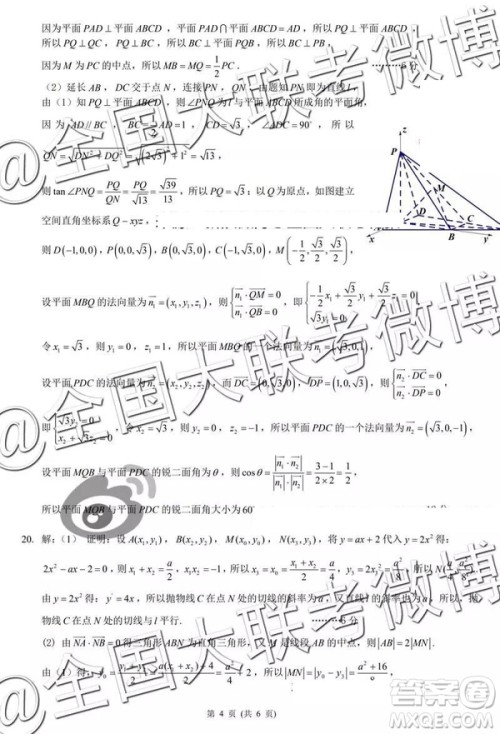 因为平面 PAD⊥平面 ABCD，平面 PAD∩平面 ABCD=AD，所以 PQ⊥平面 ABCD；
所以 PQ⊥QC， PQ⊥BC，所以 BC⊥平面 PQB，所以 BC⊥PB，
因为 M 为 PC 的中点，所以 MB=MQ=1/2 PC．
（2）延长 AB，DC 交于点 N，连接 PN，QN
由（1）知 PQ⊥平面 ABCD，则∠PNQ 为 l 与平面 ABCD 所成角的平面角，
因为 AD//BC，BC=1/2AD=1，CD=√3，∠ADC=90°，所以
QN=√(DN²+DQ²)=√((2√3)²+1²)=√13，
则 tan∠PNQ=PQ/QN=PQ/√13=√39/13，所以 PQ=√3；以 Q 为原点，如图建立
空间直角坐标系 Q−xyz，
则 D(−1,0,0)，P(0,0,√3)，B(0,√3,0)，C(−1,√3,0)，M(−1/2,√3/2,√3/2)
z
P
M
D
C
B
x
y
设平面 MBQ 的法向量为 n₁=(x₁,y₁,z₁)，则 {n₁·QM=0 n₁·QB=0，即 {−1/2x₁+√3/2y₁+√3/2z₁=0 √3y₁=0
令 x₁=√3，则 y₁=0，z₁=1，所以平面 MBQ 的一个法向量为 n₁=(√3,0,1)，
设平面 PDC 的法向量为 n₂=(x₂,y₂,z₂)，而 DC=(0,√3,0)，DP=(1,0,√3)，则 {n₂·DC=0 n₂·DP=0，
即 {√3y₂=0 x₂+√3z₂=0，令 x₂=√3，则 y₂=0，z₂=−1，所以平面 PDC 的一个法向量为 n₂=(√3,0,−1)，
设平面 MQB 与平面 PDC 的锐二面角为 θ，则 cosθ=|n₁·n₂|/|n₁||n₂|=(3−1)/(2×2)=1/2，
所以平面 MQB 与平面 PDC 的锐二面角大小为 60°
20. 解：（1） 证明：设 A(x₁,y₁)，B(x₂,y₂)，M(x₀,y₀)，N(x₃,y₃)，将 y=ax+2 代入 y=2x² 得：
2x²−ax−2=0，则 x₁+x₂=a/2，x₁x₂=−1，所以 x₃=x₀=(x₁+x₂)/2=a/4，y₃=2x₃²=a²/8，所以 N(a/4,a²/8)
由 y=2x² 得：y′=4x，所以抛物线 C 在点 N 处的切线的斜率为 a，又直线 l 的斜率为 a，所以，抛
物线 C 在点 N 处的切线与 l 平行．
(2) 由 NA·NB=0 得三角形 ABN 为直角三角形，又 M 是线段 AB 的中点，则 |AB|=2|MN|．
由（1）得：y₀=(y₁+y₂)/2=(a(x₁+x₂)+4)/2=a²/4+2，所以 |MN|=|y₀−y₃|=(a²+16)/8
第 4 页 (共 6 页)
@全国大联考微博
@全国大联考微博
@全国大联考微博
答案圈